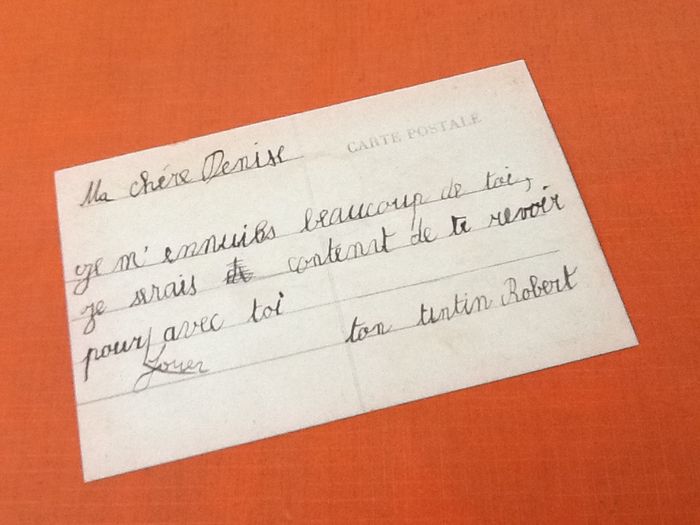 CARTE POSTALE
Ma chére Denise
je m'ennuies beaucoup de toi,
je serais contenst de te revoir
pour avec toi
Jouer
ton tintin Robert